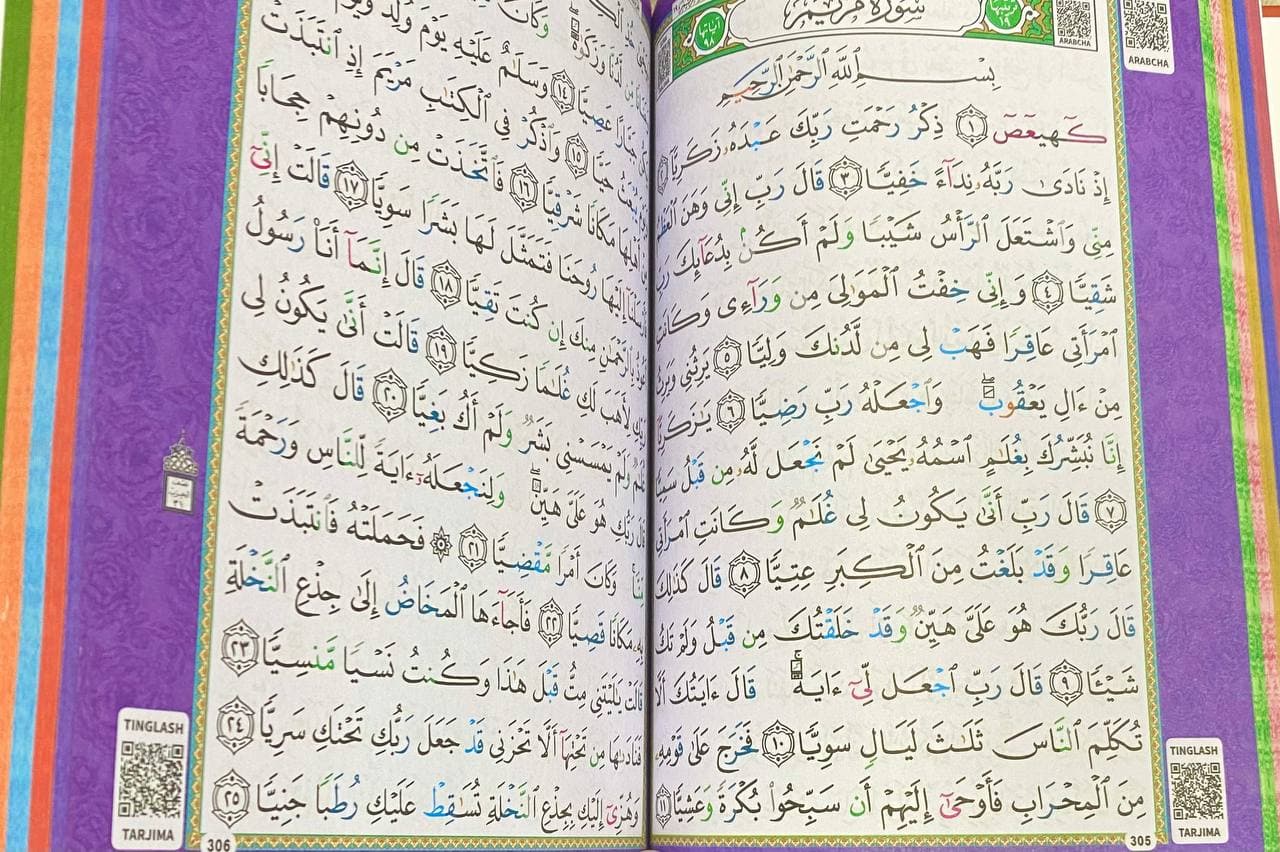 سورة مريم
ترتيبها ١٩
آياتها ٩٨
ARABCHA
ARABCHA
بِسْمِ ٱللَّهِ ٱلرَّحْمَٰنِ ٱلرَّحِيمِ
كٓهيعٓصٓ ١ ذِكْرُ رَحْمَتِ رَبِّكَ عَبْدَهُۥ زَكَرِيَّآ ٢
إِذْ نَادَىٰ رَبَّهُۥ نِدَآءً خَفِيًّا ٣ قَالَ رَبِّ إِنِّى وَهَنَ ٱلْعَظْمُ
مِنِّى وَٱشْتَعَلَ ٱلرَّأْسُ شَيْبًا وَلَمْ أَكُنۢ بِدُعَآئِكَ رَبِّ
شَقِيًّا ٤ وَإِنِّى خِفْتُ ٱلْمَوَٰلِىَ مِن وَرَآءِى وَكَانَتِ
ٱمْرَأَتِى عَاقِرًا فَهَبْ لِى مِن لَّدُنكَ وَلِيًّا ٥ يَرِثُنِى وَيَرِثُ
مِنْ ءَالِ يَعْقُوبَ ۖ وَٱجْعَلْهُ رَبِّ رَضِيًّا ٦ يَٰزَكَرِيَّآ
إِنَّا نُبَشِّرُكَ بِغُلَٰمٍ ٱسْمُهُۥ يَحْيَىٰ لَمْ نَجْعَل لَّهُۥ مِن قَبْلُ سَمِيًّا
٧ قَالَ رَبِّ أَنَّىٰ يَكُونُ لِى غُلَٰمٌ وَكَانَتِ ٱمْرَأَتِى
عَاقِرًا وَقَدْ بَلَغْتُ مِنَ ٱلْكِبَرِ عِتِيًّا ٨ قَالَ كَذَٰلِكَ
قَالَ رَبُّكَ هُوَ عَلَىَّ هَيِّنٌ وَقَدْ خَلَقْتُكَ مِن قَبْلُ وَلَمْ تَكُ
شَيْـًٔا ٩ قَالَ رَبِّ ٱجْعَل لِّىٓ ءَايَةً ۚ قَالَ ءَايَتُكَ أَلَّا
تُكَلِّمَ ٱلنَّاسَ ثَلَٰثَ لَيَالٍ سَوِيًّا ١٠ فَخَرَجَ عَلَىٰ قَوْمِهِۦ
مِنَ ٱلْمِحْرَابِ فَأَوْحَىٰٓ إِلَيْهِمْ أَن سَبِّحُوا۟ بُكْرَةً وَعَشِيًّا ١١
TINGLASH
TARJIMA
305
لَّدُنَّا وَزَكَوٰةً ۖ وَكَانَ
جَبَّارًا عَصِيًّا ١٤ وَسَلَٰمٌ عَلَيْهِ يَوْمَ وُلِدَ وَيَوْمَ
يُبْعَثُ حَيًّا ١٥ وَٱذْكُرْ فِى ٱلْكِتَٰبِ مَرْيَمَ إِذِ ٱنتَبَذَتْ
مِنْ أَهْلِهَا مَكَانًا شَرْقِيًّا ١٦ فَٱتَّخَذَتْ مِن دُونِهِمْ حِجَابًا
فَأَرْسَلْنَآ إِلَيْهَا رُوحَنَا فَتَمَثَّلَ لَهَا بَشَرًا سَوِيًّا ١٧ قَالَتْ إِنِّىٓ
أَعُوذُ بِٱلرَّحْمَٰنِ مِنكَ إِن كُنتَ تَقِيًّا ١٨ قَالَ إِنَّمَآ أَنَا۠ رَسُولُ
رَبِّكِ لِأَهَبَ لَكِ غُلَٰمًا زَكِيًّا ١٩ قَالَتْ أَنَّىٰ يَكُونُ لِى
غُلَٰمٌ وَلَمْ يَمْسَسْنِى بَشَرٌ وَلَمْ أَكُ بَغِيًّا ٢٠ قَالَ كَذَٰلِكِ
قَالَ رَبُّكِ هُوَ عَلَىَّ هَيِّنٌ ۖ وَلِنَجْعَلَهُۥٓ ءَايَةً لِّلنَّاسِ وَرَحْمَةً
مِّنَّا ۚ وَكَانَ أَمْرًا مَّقْضِيًّا ٢١ ۞ فَحَمَلَتْهُ فَٱنتَبَذَتْ
بِهِۦ مَكَانًا قَصِيًّا ٢٢ فَأَجَآءَهَا ٱلْمَخَاضُ إِلَىٰ جِذْعِ ٱلنَّخْلَةِ
قَالَتْ يَٰلَيْتَنِى مِتُّ قَبْلَ هَٰذَا وَكُنتُ نَسْيًا مَّنسِيًّا ٢٣
فَنَادَىٰهَا مِن تَحْتِهَآ أَلَّا تَحْزَنِى قَدْ جَعَلَ رَبُّكِ تَحْتَكِ سَرِيًّا ٢٤
وَهُزِّىٓ إِلَيْكِ بِجِذْعِ ٱلنَّخْلَةِ تُسَٰقِطْ عَلَيْكِ رُطَبًا جَنِيًّا ٢٥
نصف
الحزب
٣١
TINGLASH
TARJIMA
306